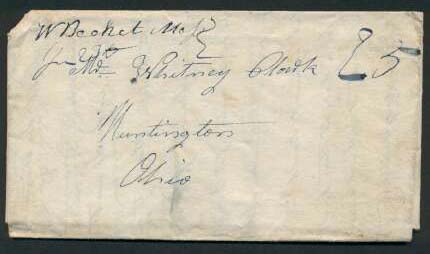 W Becket Ms
Jan 23d 25
Mr. Whitney Clark
Huntington
Ohio